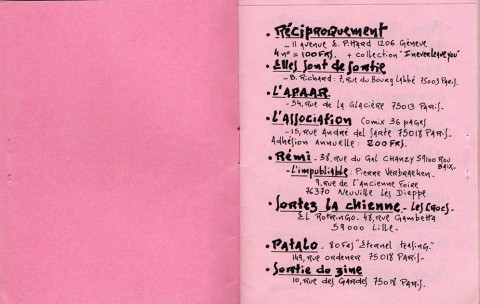 • Réciproquement
– 11 avenue E. Pittard 1206 Genève
4 n° = 100 FRS. + collection "I never leave you"
• Elles sont de sortie
– B. Richard: 7, rue du Bourg Labbé 75003 Paris.
• L'APAAR
– 54, rue de la Glacière 75013 Paris–
• L'Association Comix 36 pages
– 15, rue André del Sarte 75018 Paris–
Adhésion annuelle: 200 FRS.
• Rémi – 38, rue du Gal Chanzy 59100 Rou
baix–
– L'impubliable: Pierre Verbraeken–
9, rue de l'ancienne Foire
76370 Neuville Lès Dieppe
• Sortez la chienne – Les Crocs –
El Rotringo – 48, rue Gambetta
59000 Lille–
• Patalo – 80 FRS "Eternel teasing."
149, rue ordener 75018 Paris–
• Sortie du zine
10, rue des Gardes 75018 Paris–